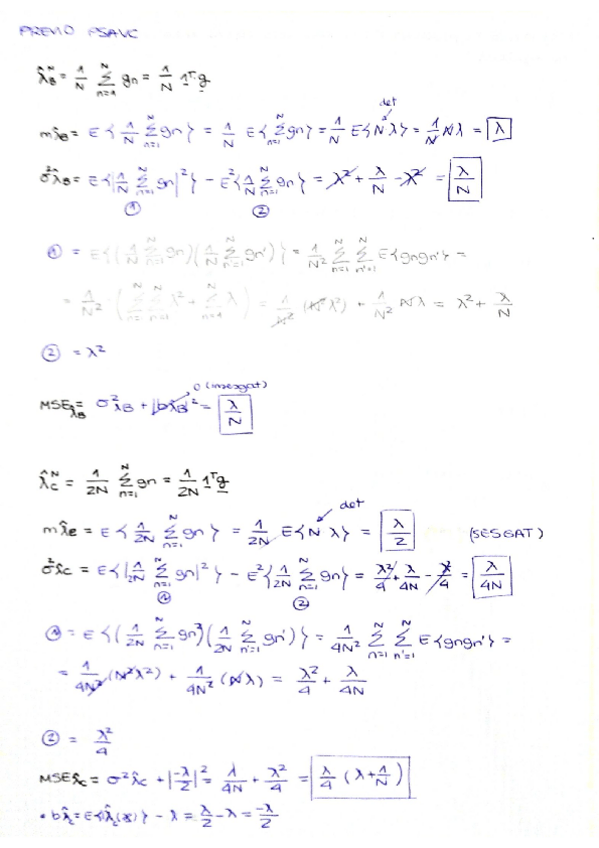 PREVIO PSAVC
λ̂_B^N = 1/N Σ_{n=1}^N gn = 1/N 1^T·g
det
mλ̂_B = E{1/N Σ_{n=1}^N gn} = 1/N E{Σ_{n=1}^N gn} = 1/N E{Nλ} = 1/N Nλ = λ
σ²λ̂_B = E{|1/N Σ_{n=1}^N gn|²} - E²{1/N Σ_{n=1}^N gn} = λ² + λ/N - λ² = λ/N
① ②
① = E{(1/N Σ_{n=1}^N gn)(1/N Σ_{n'=1}^N gn')} = 1/N² Σ_{n=1}^N Σ_{n'=1}^N E{gngn'} =
= 1/N² · (Σ_{n=1}^N Σ_{n=1}^N λ² + Σ_{n=1}^N λ) = 1/N² (N²λ²) + 1/N² Nλ = λ² + λ/N
② = λ²
0 (insesgat)
MSE_{λ̂_B} = σ²λ̂_B + |bλ̂_B|² = λ/N
λ̂_C^N = 1/2N Σ_{n=1}^N gn = 1/2N 1^T g
det
mλ̂_C = E{1/2N Σ_{n=1}^N gn} = 1/2N E{Nλ} = λ/2 (SESGAT)
σ²λ̂_C = E{|1/2N Σ_{n=1}^N gn|²} - E²{1/2N Σ_{n=1}^N gn} = λ²/4 + λ/4N - λ²/4 = λ/4N
① ②
① = E{(1/2N Σ_{n=1}^N gn)(1/2N Σ_{n'=1}^N gn')} = 1/4N² Σ_{n=1}^N Σ_{n'=1}^N E{gngn'} =
= 1/4N² (N²λ²) + 1/4N² (Nλ) = λ²/4 + λ/4N
② = λ²/4
MSEλ̂_C = σ²λ̂_C + |-λ/2|² = λ/4N + λ²/4 = λ/4 (λ + 1/N)
• bλ̂_C = E{λ̂_C(g)} - λ = λ/2 - λ = -λ/2